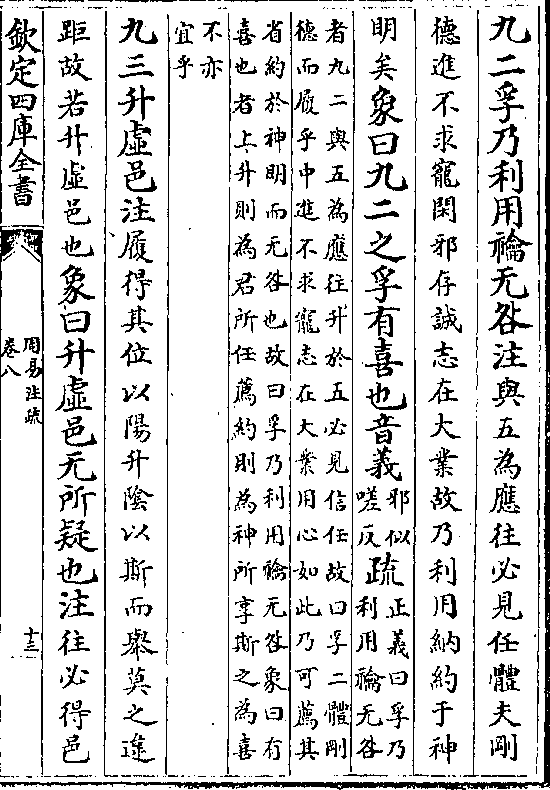 九二孚乃利用禴无咎注與五為應往必見任體夫剛
德進不求寵閑邪存誠志在大業故乃利用納約于神
明矣象曰九二之孚有喜也音義
邪似
嗟反
疏
正義曰孚乃
利用禴无咎
者九二與五為應往升於五必見信任故曰孚二體剛
德而履乎中進不求寵志在大業用心如此乃可薦其
省約於神明而无咎也故曰孚乃利用禴无咎象曰有
喜也者上升則為君所任薦約則為神所享斯之為喜
不亦
宜乎
九三升虛邑注履得其位以陽升陰以斯而舉莫之違
距故若升虛邑也象曰升虛邑无所疑也注往必得邑
欽定四庫全書
周易注疏
卷八
十三